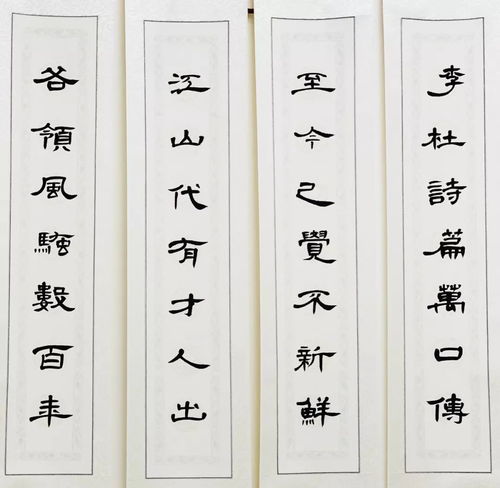 李杜詩篇萬口傳
至今已覺不新鮮
江山代有才人出
各領風騷數百年